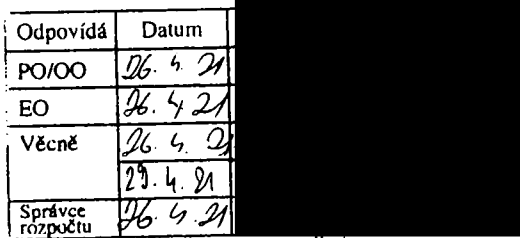 Odpovídá Datum
PO/OO 26. 4. 21
EO 26. 4. 21
Věcně 26. 4. 21
29. 4. 21
Správce rozpočtu 26. 4. 21